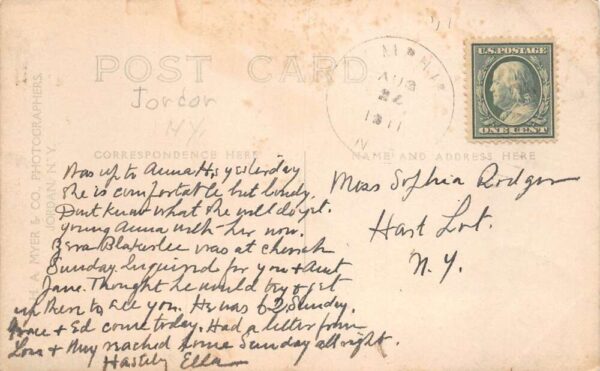 POST CARD
Jordan
N.Y.
AUG
24
1911
N
U.S. POSTAGE
ONE CENT
CORRESPONDENCE HERE
NAME AND ADDRESS HERE
H. A. MYER & CO. PHOTOGRAPHERS.
JORDAN, N.Y.
Was up to Anna H's yesterday
She is comfortable but lonely.
Dont know what she will do yet.
Young Anna with her now.
Ezra Blakeslee was at church
Sunday Inquired for you & Aunt
Jane. Thought he would try & get
up there to see you. He was 62 Sunday.
& Ed come today. Had a letter from
& reached home Sunday allright.
Hastily Ella
Miss Sophia
Hast Lot.
N.Y.